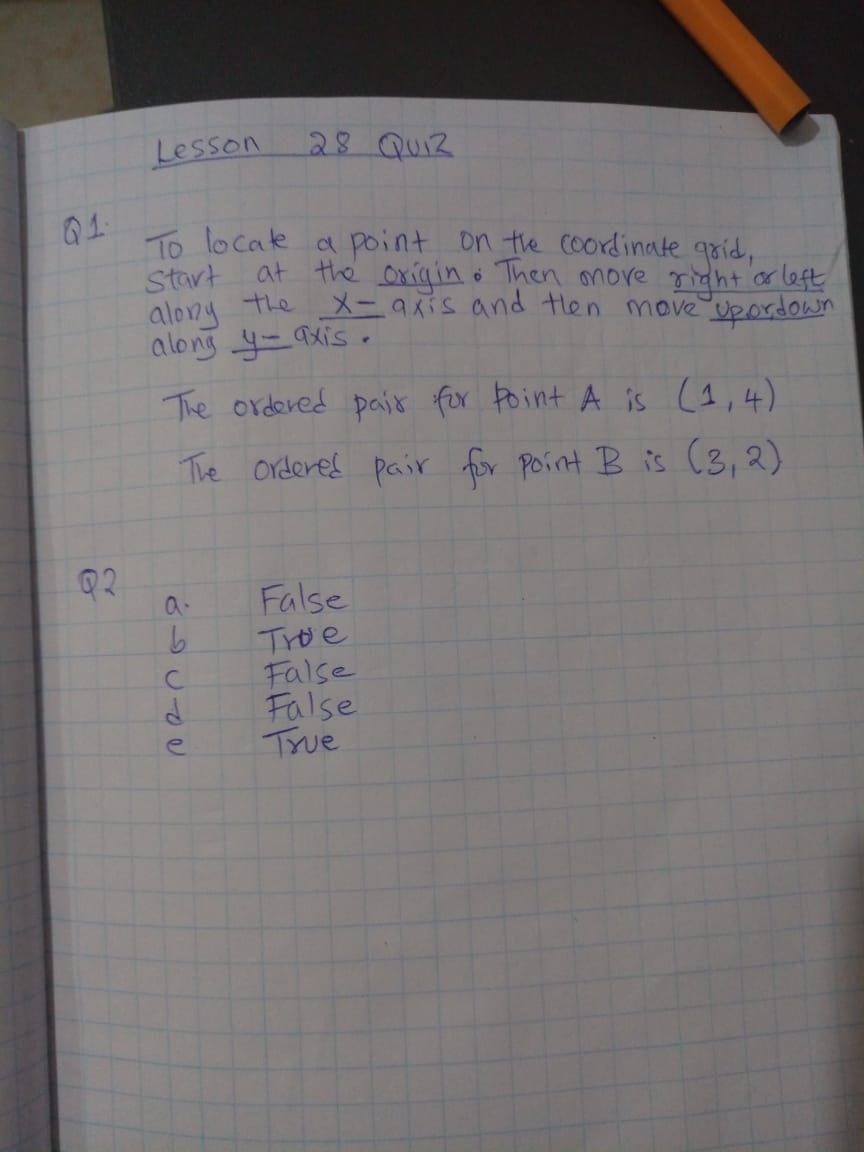 Lesson 28 QUIZ
Q1. To locate a point on the coordinate grid,
start at the origin. Then move right or left
along the x- axis and then move up or down
along y- axis.
The ordered pair for point A is (1,4)
The ordered pair for point B is (3,2)
Q2
a. False
b True
c False
d False
e True